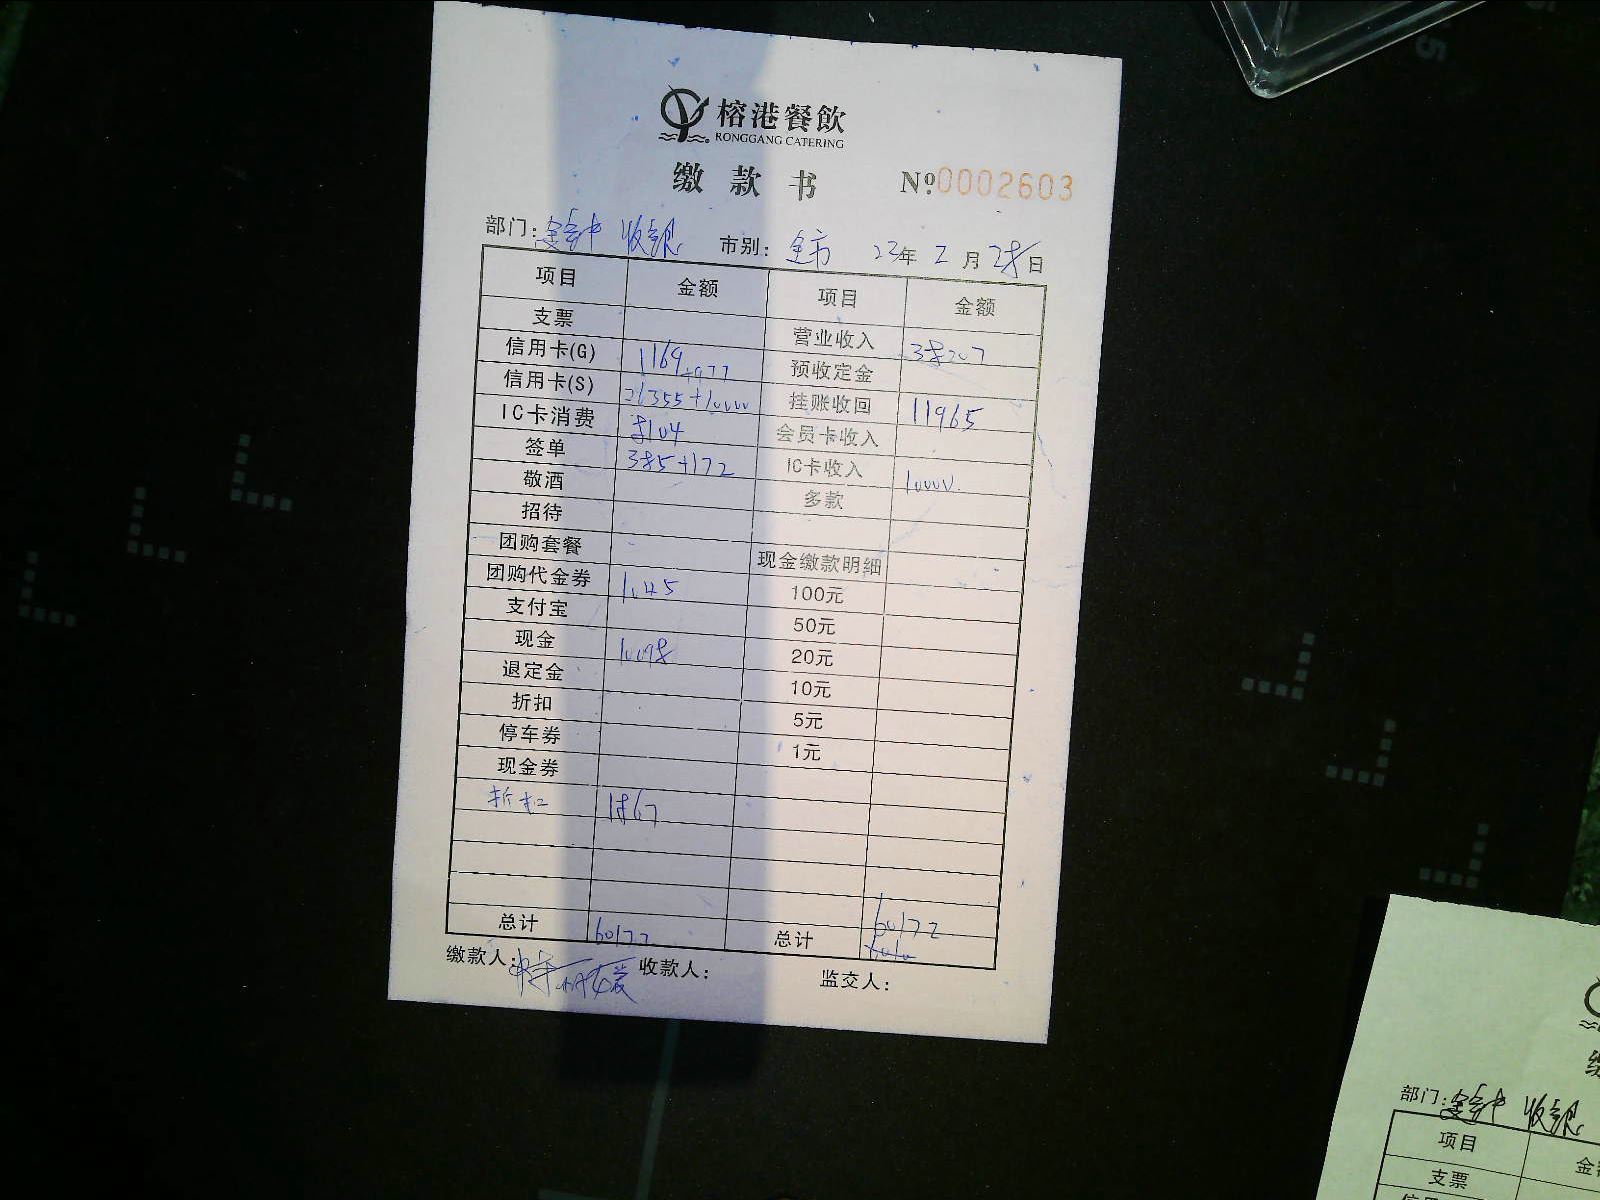 榕港餐飲
RONGGANG CATERING
缴款书 №0002603
部门: 收银 市别: 全市 23年 2月 28日
项目 金额 项目 金额
支票 营业收入 38207
信用卡(G) 1169+977 预收定金
信用卡(S) 26355+10000 挂账收回 11965
IC卡消费 8104 会员卡收入
签单 385+172 IC卡收入 10000
敬酒 多款
招待
团购套餐 现金缴款明细
团购代金券 1045 100元
支付宝 50元
现金 10098 20元
退定金 10元
折扣 5元
停车券 1元
现金券
折扣 1867
总计 60172 总计 60172
缴款人: 收款人: 监交人:
部门: 收银
项目
支票